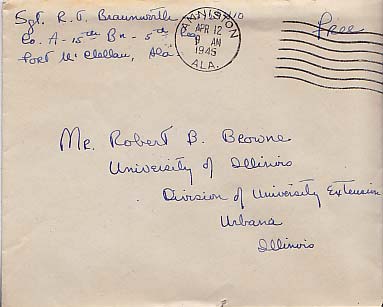 Sgt. R. T. Braunworth
Co. A - 15th Bn - 5th Reg
Fort McClellan, Ala
ANNISTON
APR 12
9 AM
1945
ALA.
Free
Mr. Robert B. Browne
University of Illinois
Division of University Extension
Urbana
Illinois